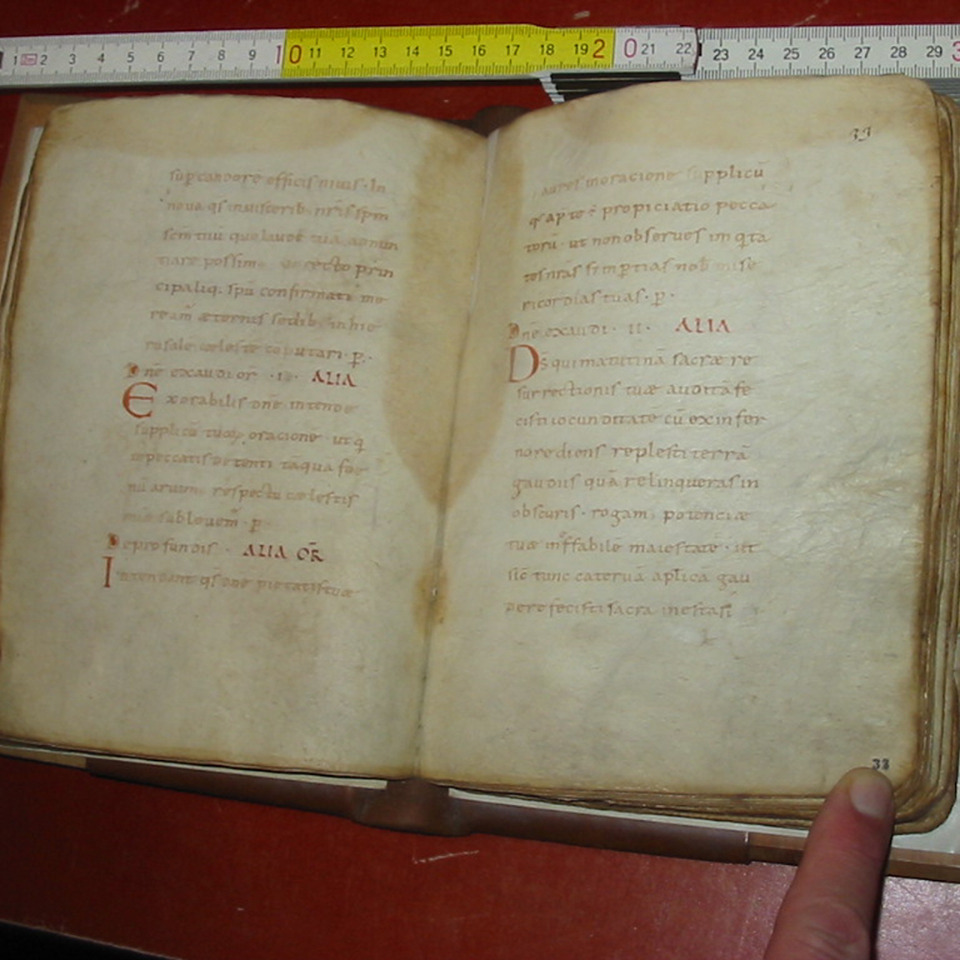 1 2 3 4 5 6 7 8 9 10 11 12 13 14 15 16 17 18 19 20 21 22 23 24 25 26 27 28 29 3
sup candore efficis niuis · In
noua qs inuiscerib nr̄is sp̄m
sc̄m tuū quo laude tua
tiare possim recto prin
cipaliq. spū confirmati
ream æternis sedib. in hie
rusale celeste reputari · p̄.
Dn̄e exaudi or̄ · ALIA
Exorabilis dn̄e intende
supplicū oracione ut q
peccatis detenti tāqua foe
nū aruim respectu cœlestis
subleuem̄ · p
De profundis · ALIA OR̄
Intendant qs dn̄e pietatis tuæ
33
aures in oracione supplicū
propiciatio pecca
torū · ut non obserues iniq̄ta
tes nr̄as nob̄ mise
ricordias tuas · p̄ ·
Dn̄e exaudi · II · ALIA
Dс̄ qui matutinā sacræ re
surrectionis tuæ auditā fe
cisti iocunditate cū ex infer
no rediens replesti terrā
gaudiis quā relinqueras in
obscuris · rogam potenciæ
tuæ inffabilē maiestatē · ut
sic̄ tunc cateruā aplicā gau
dere fecisti sacra
33